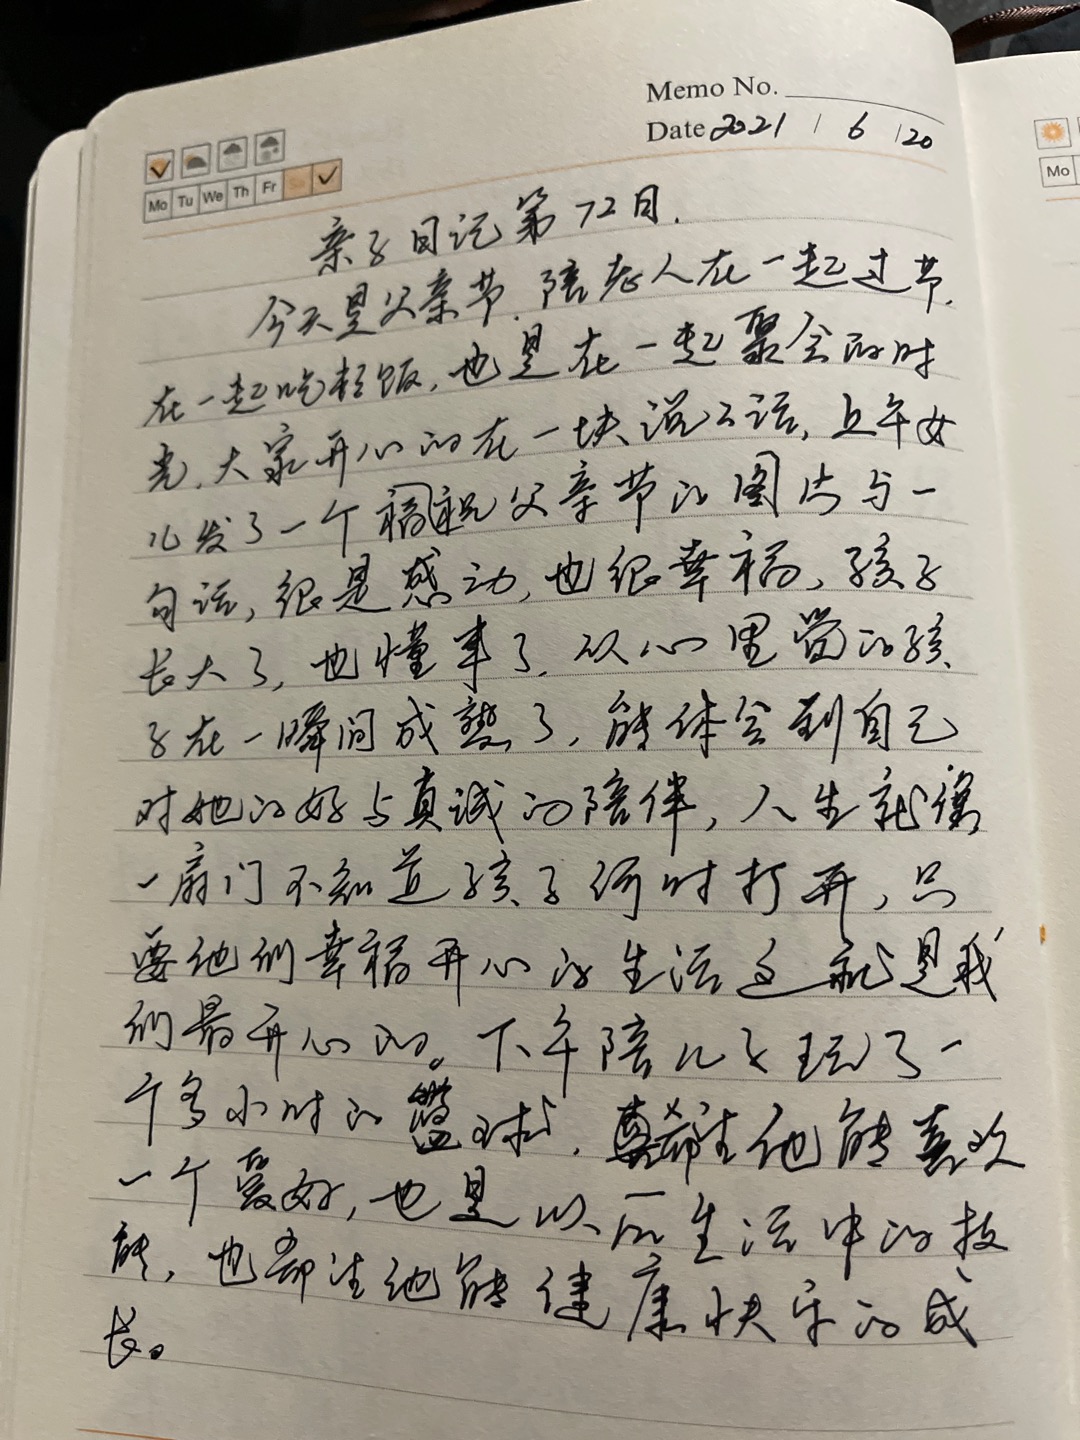 Memo No.
Date 2021 / 6 / 20
Mo Tu We Th Fr Sa
Mo
亲子日记第72日.
今天是父亲节,陪老人在一起过节.
在一起吃轻饭,也是在一起聚会的时
光,大家开心的在一块说说话,上午女
儿发了一个祝福父亲节的图片与一
句话,很是感动,也很幸福,孩子
长大了,也懂事了,从心里觉的孩
子在一瞬间成熟了,能体会到自己
对她的好与真诚的陪伴,人生就像
一扇门不知道孩子何时打开,只
要他们幸福开心的生活这就是我
们最开心的。下午陪儿子玩了一
个多小时的篮球,真希望他能喜欢
一个爱好,也是以后生活中的技
能,也希望他能健康快乐的成
长。